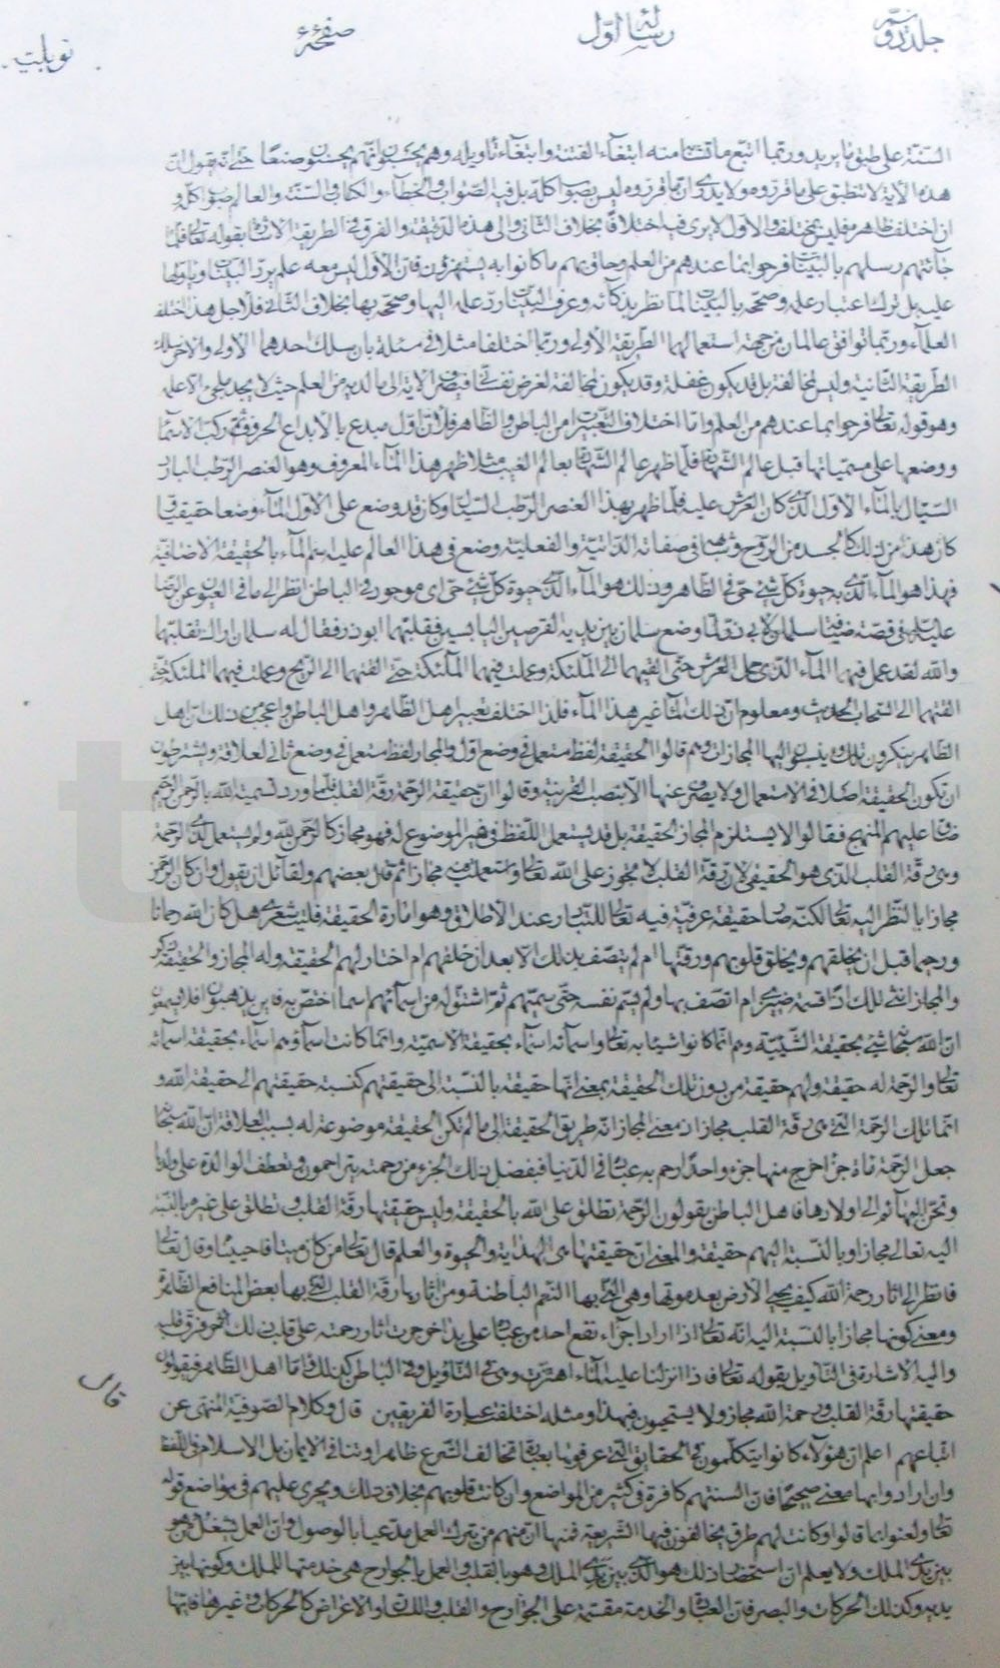 جلد دويم رسالهٔ اوّل صفحهٔ نوبلت
السّنّة على طبق ما يريد وربّما اتبع ما تشابه منه ابتغاء الفتنة وابتغاء تأويله وهم يحسبون انّهم يحسنون صنعا حتّى انّه يقول انّ
هذه الآية لا تنطبق على ما قرّروه ولا يدرى انّ ما قرّروه ليس بصواب كلّه بل فيه الصّواب والخطاء والكتاب والسّنّة والعالم صواب كلّ و
ان اختلف ظاهره فليس بمختلف والاوّل لا يرى فيه اختلافا بخلاف الثانى والى هذه الدقيقة والفرق فى الطريقة الاشارة بقوله تعالى فلمّا
جائتهم رسلهم بالبيّنات فرحوا بما عندهم من العلم وحاق بهم ما كانوا به يستهزؤن فانّ الاوّل ليس معه علم يردّ البيّنات ويأوّلها
عليه بل ترك اعتبار علمه وصحّحه بالبيّنات لما نظر بذكائه وعرف البيّنات ردّ علمه اليها وصحّحه بها بخلاف الثانى فلاجل هذا اختلف
العلماء وربّما توافق عالمان من جهة استعمالهما الطريقة الاولى وربّما اختلفا مثلا فى مسئلة بان سلك احدهما الاولى والآخر سلك
الطريقة الثانية وليس لمخالفة بل قد يكون غفلة وقد يكون لمخالفة لغرض نفسانى فيصرف الآية الى ما لديه من العلم حيث لا يجد ملجئ الا علمه
وهو قوله تعالى فرحوا بما عندهم من العلم وامّا اختلاف التعبير من الباطن والظاهر فلانّ اوّل مبدع بالابداع الحروف ثمّ ركب الاسماء
ووضعها على مسمّياتها قبل عالم الشهادة فلمّا ظهر عالم الشهادة بعالم الغيب مثلا ظهر هذا الماء المعروف وهو العنصر الرّطب البارد
السيّال بالماء الاوّل الّذى كان العرش عليه فلمّا ظهر بهذا العنصر الرّطب السّيّال وكان قد وضع على الاوّل الماء وضعا حقيقيا
كان هذا من ذلك كالجسد من الرّوح وشابهه فى صفاته الذاتية والفعلية وضع فى هذا العالم عليه اسم الماء بالحقيقة الاضافية
فهذا هو الماء الّذى به حيوة كلّ شئ حىّ فى الظاهر وذلك هو الماء الّذى حيوة كلّ شئ حىّ اى موجود فى الباطن انظر الى ما فى العيون عن الرّضا
عليه السلام فى قصّة ضيافة سلمان لابى ذرّ لمّا وضع سلمان بين يديه القرصين اليابسين فقلبهما ابو ذر فقال له سلمان اراك تقلبهما
والله لقد عمل فيهما الماء الّذى حمل العرش حتّى القيهما الى الملئكة وعملت فيهما الملائكة حتّى القتهما الى الرّيح وعملت فيهما الملئكة حتّى
القتهما الى السّحاب الحديث ومعلوم انّ ذلك الماء غير هذا الماء فلذا اختلف تعبير اهل الظاهر واهل الباطن واعجب من ذلك انّ اهل
الظاهر ينكرون ذلك وينسبون اليها المجازات وهم قالوا الحقيقة لفظ مستعمل فى وضع اوّل والمجاز لفظ مستعمل فى وضع ثانى لعلاقة ويشترطون
ان تكون الحقيقة اصلا فى الاستعمال ولا يصرف عنها الا بنصب القرينة وقالوا انّ حقيقة الرّحمة رقّة القلب فلمّا ورد تسمية الله بالرّحمن الرّحيم
ضاق عليهم المنهج فقالوا لا يستلزم المجاز الحقيقة بل قد يستعمل اللّفظ فى غير الموضوع له فهو مجاز كالرّحمن لله ولم يستعمل لذى الرّحمة
وهى رقّة القلب الّذى هو الحقيقى لانّ رقّة القلب لا تجوز على الله تعالى واستعملت فيه مجازا ثم قال بعضهم ولقائل ان يقول وان كان الرّحمن
مجازا بالنّظر اليه تعالى لكنّه صار حقيقة عرفيّة فيه تعالى للتّبادر عند الاطلاق وهو امارة الحقيقة فليت شعرى هل كان الله رحمانا
ورحيما قبل ان يخلقهم ويخلق قلوبهم ورقّتها ام لم يتّصف بذلك الا بعد ان خلقهم ام اختار لهم الحقيقة وله المجاز والحقيقة ذكر
والمجاز انثى تلك اذا قسمة ضيزى ام اتصف بها ولم يسمّ نفسه حتّى سمّيهم ثمّ اشتقّ له من اسمائهم اسما اختصّ به فاين يذهبون افلا يفهمون
انّ الله سبحانه شئ بحقيقة الشّيئيّة وهم انّما كانوا شيئا به تعالى واسمائه اسماء بحقيقة الاسميّة وانّما كانت اسماؤهم اسماء بحقيقة اسمائه
تعالى والرّحمة له حقيقة ولهم حقيقة من دون تلك الحقيقة بمعنى انّها حقيقة بالنّسبة الى حقيقتهم كنسبة حقيقتهم الى حقيقة الله و
انّما تلك الرّحمة الّتى هى رقّة القلب مجاز اذ معنى المجاز انّه طريق الحقيقة الى ما لم تكن الحقيقة موضوعة له بسبب العلاقة انّ الله سبحانه
جعل الرّحمة مأة جزء اخرج منها جزء واحدا رحم به عباده فى الدّنيا فبفضل ذلك الجزء من رحمته يتراحمون وتعطف الوالدة على ولدها
وتحنّ البهائم الى اولادها فاهل الباطن يقولون الرّحمة تطلق على الله بالحقيقة وليس حقيقتها رقّة القلب وتطلق على غيره بالنّسبة
اليه تعالى مجازا وبالنّسبة اليهم حقيقة والمعنى انّ حقيقتها هى الهداية والحيوة والعلم قال تعالى او من كان ميتا فاحييناه وقال تعالى
فانظر الى اثار رحمة الله كيف يحيى الارض بعد موتها وهى الّتى بها النّعم الباطنة ومن آثارها رقّة القلب الّتى بها بعض المنافع الظاهرة
ومعنى كونها مجازا بالنّسبة اليه انّه تعالى اذا اراد اجراء نفع احد من عباده على يد آخر جرت اثار رحمته على قلب ذلك الآخر فرقّ قلبه
واليه الاشارة فى التأويل بقوله تعالى فاذا انزلنا عليها الماء اهتزّت وهى فى التأويل وفى الباطن كذلك وامّا اهل الظاهر فيقولون
حقيقتها رقّة القلب ورحمة الله مجاز ولا يستحيون فبهذا ومثله اختلفت عبارة الفريقين قال وكلام الصّوفيّة المنهى عن
اتباعهم اعلم انّ هؤلاء كانوا يتكلّمون فى الحقائق الّتى عرفوها بعبارات تخالف الشّرع ظاهرا وتنافى الايمان بل الاسلام فى اللّفظ
وان ارادوا بها معنى صحيحا فانّ السنتهم كافرة فى كثير من المواضع وان كانت قلوبهم بخلاف ذلك ويجرى عليهم فى مواضع قوله
تعالى ولعنوا بما قالوا وكانت لهم طرق يخالفون فيها الشّريعة فمنها انّ منهم من يترك العمل مدّعيا بالوصول وانّ العمل شغل وهو
بين يدى الملك ولا يعلم انّ استحضار ذلك هو الّذى بين يدى الملك وهو بالقلب والعمل بالجوارح هى خدمتها للملك وكونها بين
يديه وكذلك الحركات والبصر فانّ العبادة والخدمة مقسّمة على الجوارح والقلب واللّسان والاعراض كالحركات وغيرها فانّها
قال